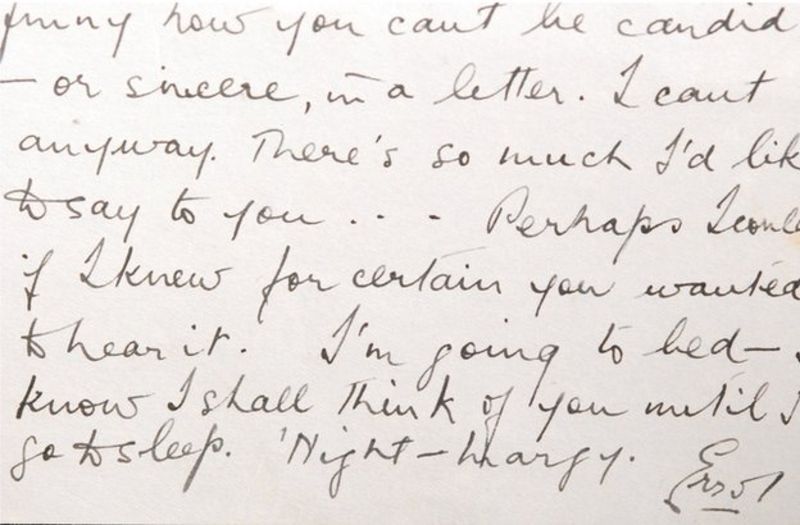 funny how you cant be candid
– or sincere, in a letter. I cant
anyway. There's so much I'd lik
to say to you . . - Perhaps I coul
if I knew for certain you wanted
to hear it. I'm going to bed – I
know I shall think of you until I
go to sleep. 'Night – Margy.
Errol